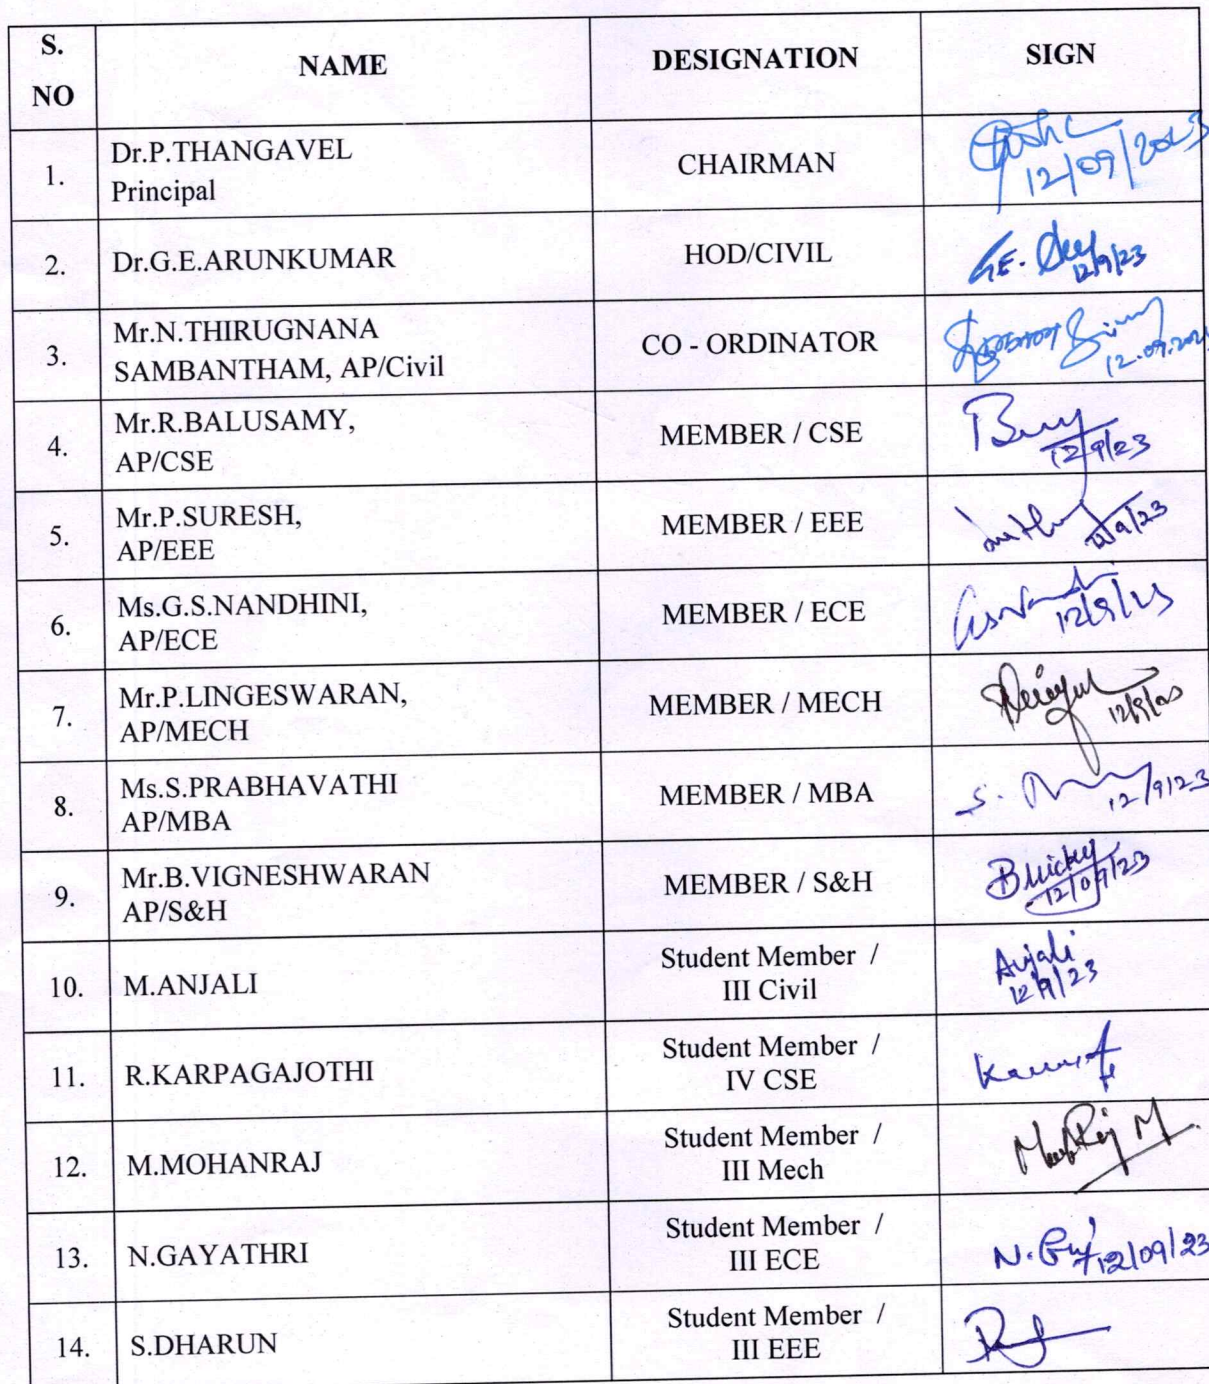 S.
NO
NAME
DESIGNATION
SIGN
1.
Dr.P.THANGAVEL
Principal
CHAIRMAN
12/09/2023
2.
Dr.G.E.ARUNKUMAR
HOD/CIVIL
G.E.
12/9/23
3.
Mr.N.THIRUGNANA
SAMBANTHAM, AP/Civil
CO - ORDINATOR
4.
Mr.R.BALUSAMY,
AP/CSE
MEMBER / CSE
12/9/23
5.
Mr.P.SURESH,
AP/EEE
MEMBER / EEE
12/9/23
6.
Ms.G.S.NANDHINI,
AP/ECE
MEMBER / ECE
12/9/23
7.
Mr.P.LINGESWARAN,
AP/MECH
MEMBER / MECH
8.
Ms.S.PRABHAVATHI
AP/MBA
MEMBER / MBA
S.
12/9/23
9.
Mr.B.VIGNESHWARAN
AP/S&H
MEMBER / S&H
12/09/23
10.
M.ANJALI
Student Member /
III Civil
Anjali
12/9/23
11.
R.KARPAGAJOTHI
Student Member /
IV CSE
12.
M.MOHANRAJ
Student Member /
III Mech
13.
N.GAYATHRI
Student Member /
III ECE
N.
12/09/23
14.
S.DHARUN
Student Member /
III EEE